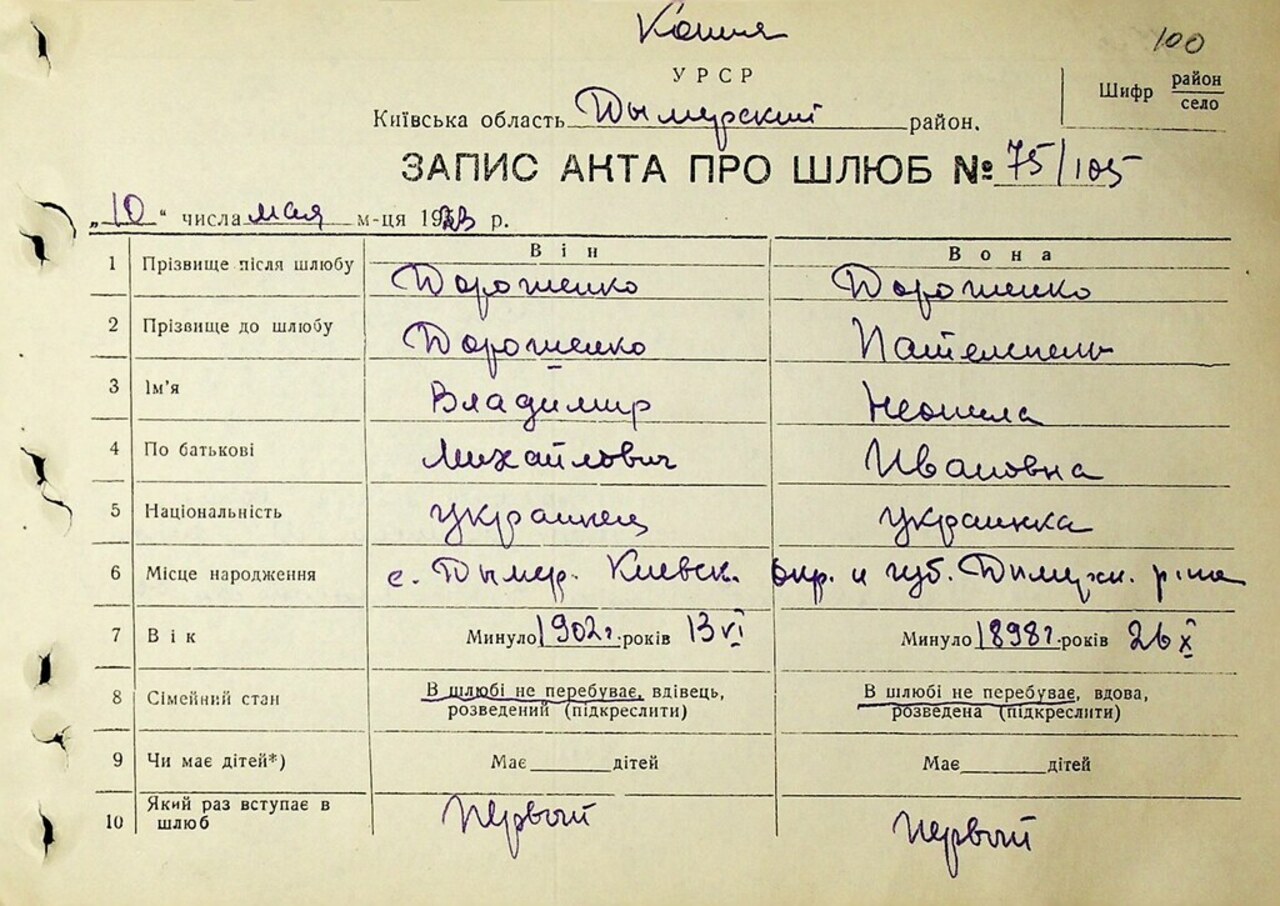 Копия
100
УРСР
Шифр район
село
Київська область Дымерский район.
ЗАПИС АКТА ПРО ШЛЮБ № 75/105
„10“ числа мая м-ця 1923 р.
Він Вона
1 Прізвище після шлюбу Дорошенко Дорошенко
2 Прізвище до шлюбу Дорошенко
3 Ім'я Владимир Неонила
4 По батькові Михайлович Ивановна
5 Національність украинец украинка
6 Місце народження с. Дымер. Киевск. окр. и губ. Дымерск. р-на
7 Вік Минуло 1902г. років 13 VI Минуло 1898г. років 26 X
8 Сімейний стан В шлюбі не перебуває, вдівець, В шлюбі не перебуває, вдова,
розведений (підкреслити) розведена (підкреслити)
9 Чи має дітей*) Має______дітей Має______дітей
10 Який раз вступає в шлюб первый первый